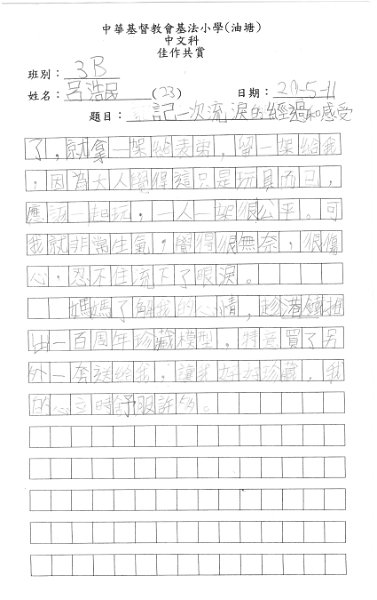 中華基督教會基法小學(油塘)
中文科
佳作共賞
班別：3B
姓名：呂浩民(23) 日期：20-5-11
題目：記一次流淚的經過和感受
了，就拿一架給表弟，留一架給我
，因為大人覺得這只是玩具而已，
應該一起玩，一人一架很公平。可
我就非常生氣，覺得很無奈，很傷
心，忍不住流下了眼淚。
媽媽了解我的心情，趁港鐵推
出一百周年珍藏模型，特意買了另
外一套送給我，讓我好好珍藏，我
的心立時舒服許多。